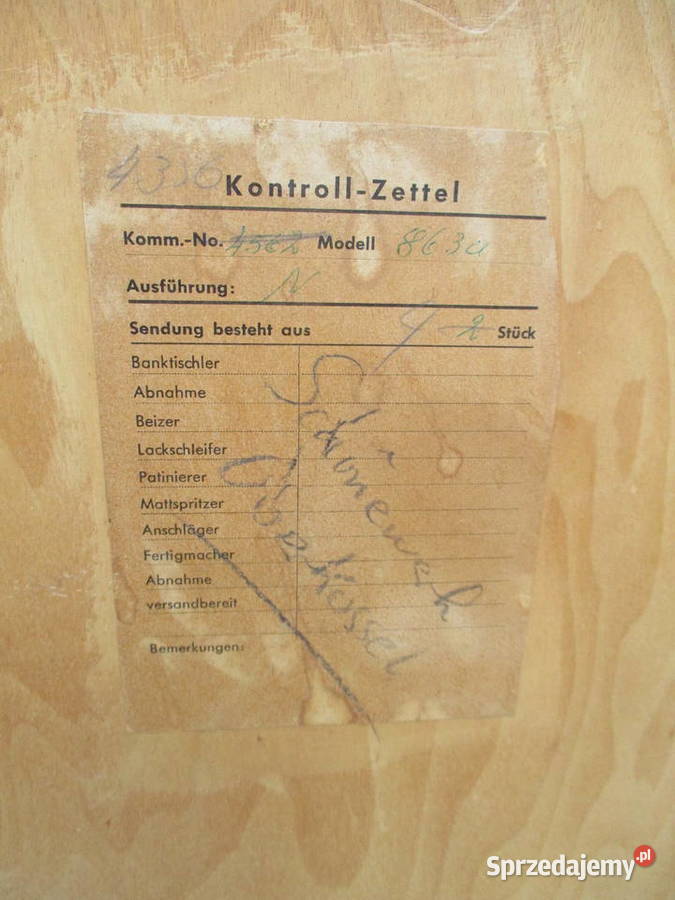 4356 Kontroll-Zettel
Komm.-No. 4562 Modell 863a
Ausführung: N
Sendung besteht aus 4 2 Stück
Banktischler
Abnahme
Beizer
Lackschleifer
Patinierer
Mattspritzer
Anschläger
Fertigmacher
Abnahme
versandbereit
Bemerkungen:
Schöneweh
Sprzedajemy.pl